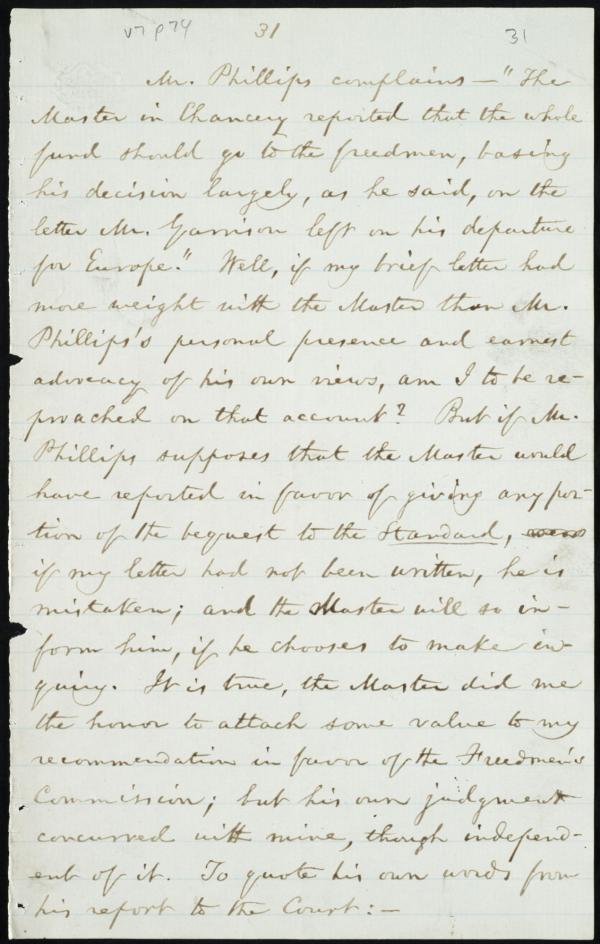 v7 p74 31 31
Mr. Phillips complains — "The
Master in Chancery reported that the whole
fund should go to the freedmen, basing
his decision largely, as he said, on the
letter Mr. Garrison left on his departure
for Europe." Well, if my brief letter had
more weight with the Master than Mr.
Phillips's personal presence and earnest
advocacy of his own views, am I to be re-
proached on that account? But if Mr.
Phillips supposes that the Master would
have reported in favor of giving any por-
tion of the bequest to the Standard,
if my letter had not been written, he is
mistaken; and the Master will so in-
form him, if he chooses to make in-
quiry. It is true, the Master did me
the honor to attach some value to my
recommendation in favor of the Freedmen's
Commission; but his own judgment
concurred with mine, though independ-
ent of it. To quote his own words from
his report to the Court: —